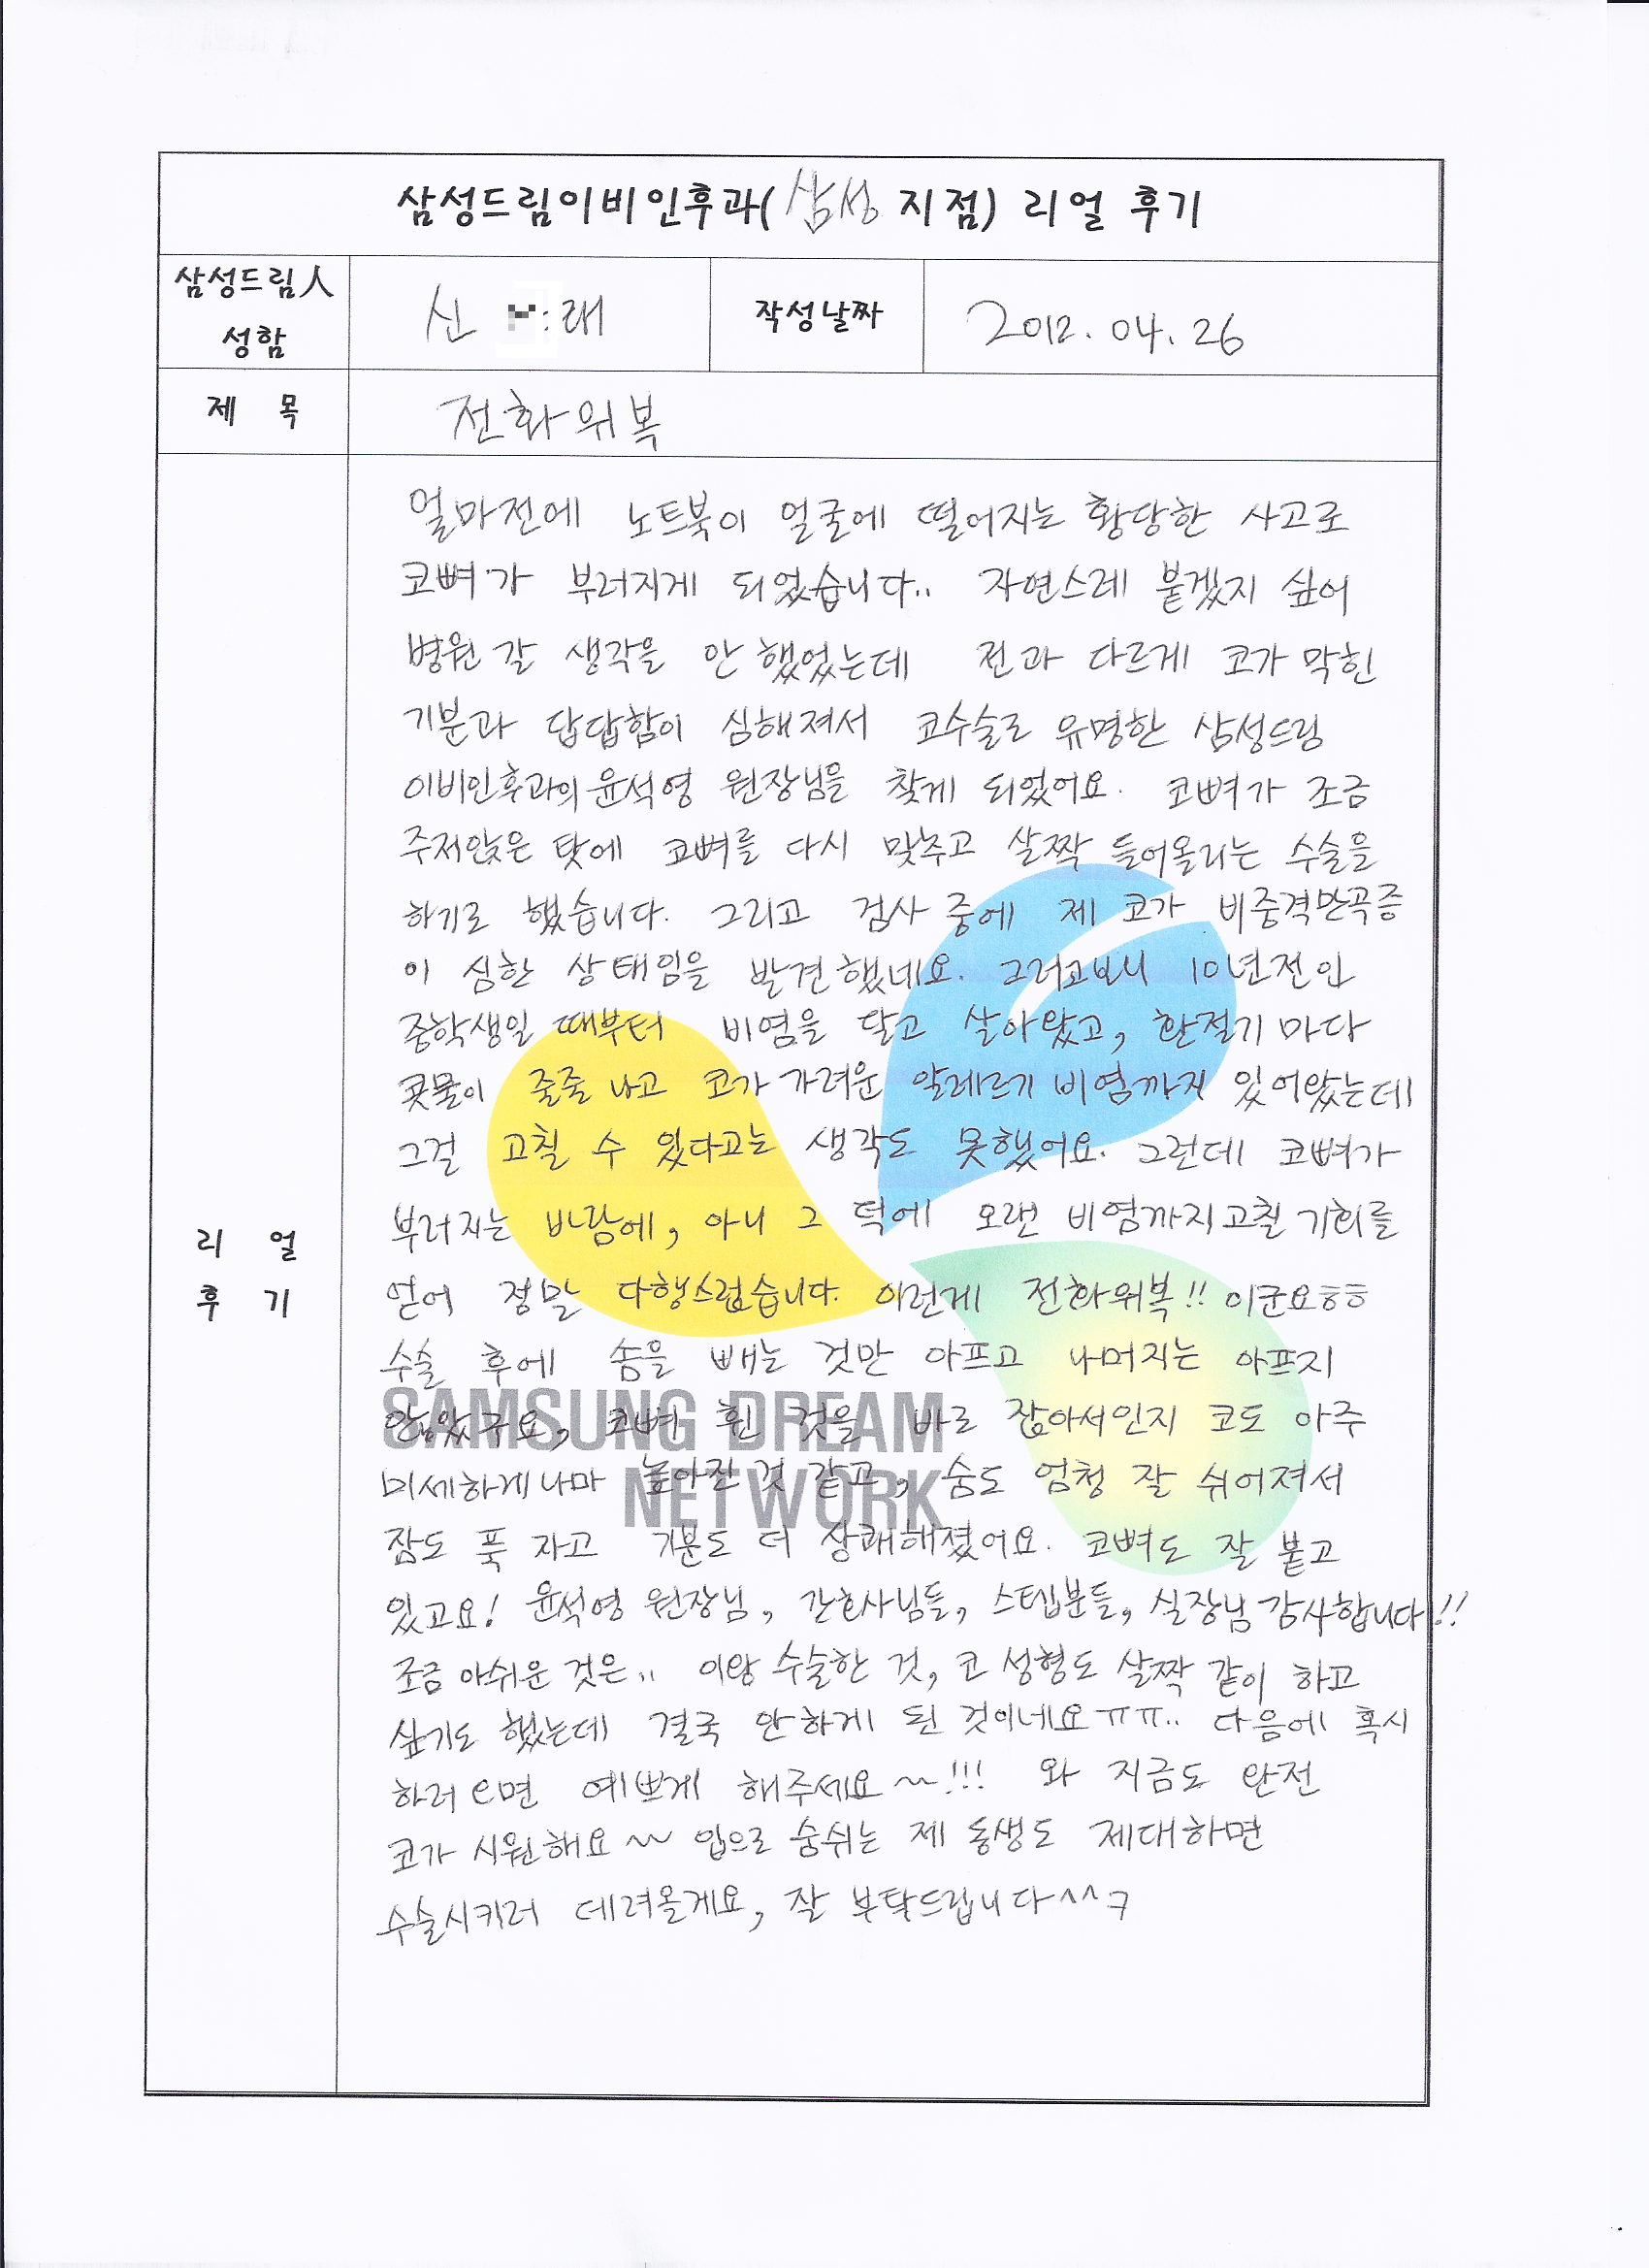 삼성드림이비인후과(삼성 지점) 리얼 후기
삼성드림人
성함
신 래
작성날짜
2012. 04. 26
제 목
전화위복
리 얼
후 기
얼마전에 노트북이 얼굴에 떨어지는 황당한 사고로
코뼈가 부러지게 되었습니다.. 자연스레 붙겠지 싶어
병원 갈 생각을 안 했었는데 전과 다르게 코가 막힌
기분과 답답함이 심해져서 코수술로 유명한 삼성드림
이비인후과의 윤석영 원장님을 찾게 되었어요. 코뼈가 조금
주저앉은 탓에 코뼈를 다시 맞추고 살짝 들어올리는 수술을
하기로 했습니다. 그리고 검사 중에 제 코가 비중격만곡증
이 심한 상태임을 발견했네요. 그러고보니 10년전인
중학생일 때부터 비염을 달고 살아왔고, 환절기 마다
콧물이 줄줄 나고 코가 가려운 알레르기 비염까지 있어왔는데
그걸 고칠 수 있다고는 생각도 못했어요. 그런데 코뼈가
부러지는 바람에, 아니 그 덕에 오랜 비염까지고칠 기회를
얻어 정말 다행스럽습니다. 이런게 전화위복!! 이군요ㅎㅎ
수술 후에 솜을 빼는 것만 아프고 나머지는 아프지
않았구요, 코뼈 휜 것을 바로 잡아서인지 코도 아주
미세하게나마 높아진 것 같고, 숨도 엄청 잘 쉬어져서
잠도 푹 자고 기분도 더 상쾌해졌어요. 코뼈도 잘 붙고
있고요! 윤석영 원장님, 간호사님들, 스텝분들, 실장님 감사합니다!!
조금 아쉬운 것은.. 이왕 수술한 것, 코 성형도 살짝 같이 하고
싶기도 했는데 결국 안하게 된 것이네요ㅠㅠ.. 다음에 혹시
하러 오면 예쁘게 해주세요~!!! 와 지금도 완전
코가 시원해요~ 입으로 숨쉬는 제 동생도 제대하면
수술시키러 데려올게요, 잘 부탁드립니다^^ㅋ
SAMSUNG DREAM
NETWORK